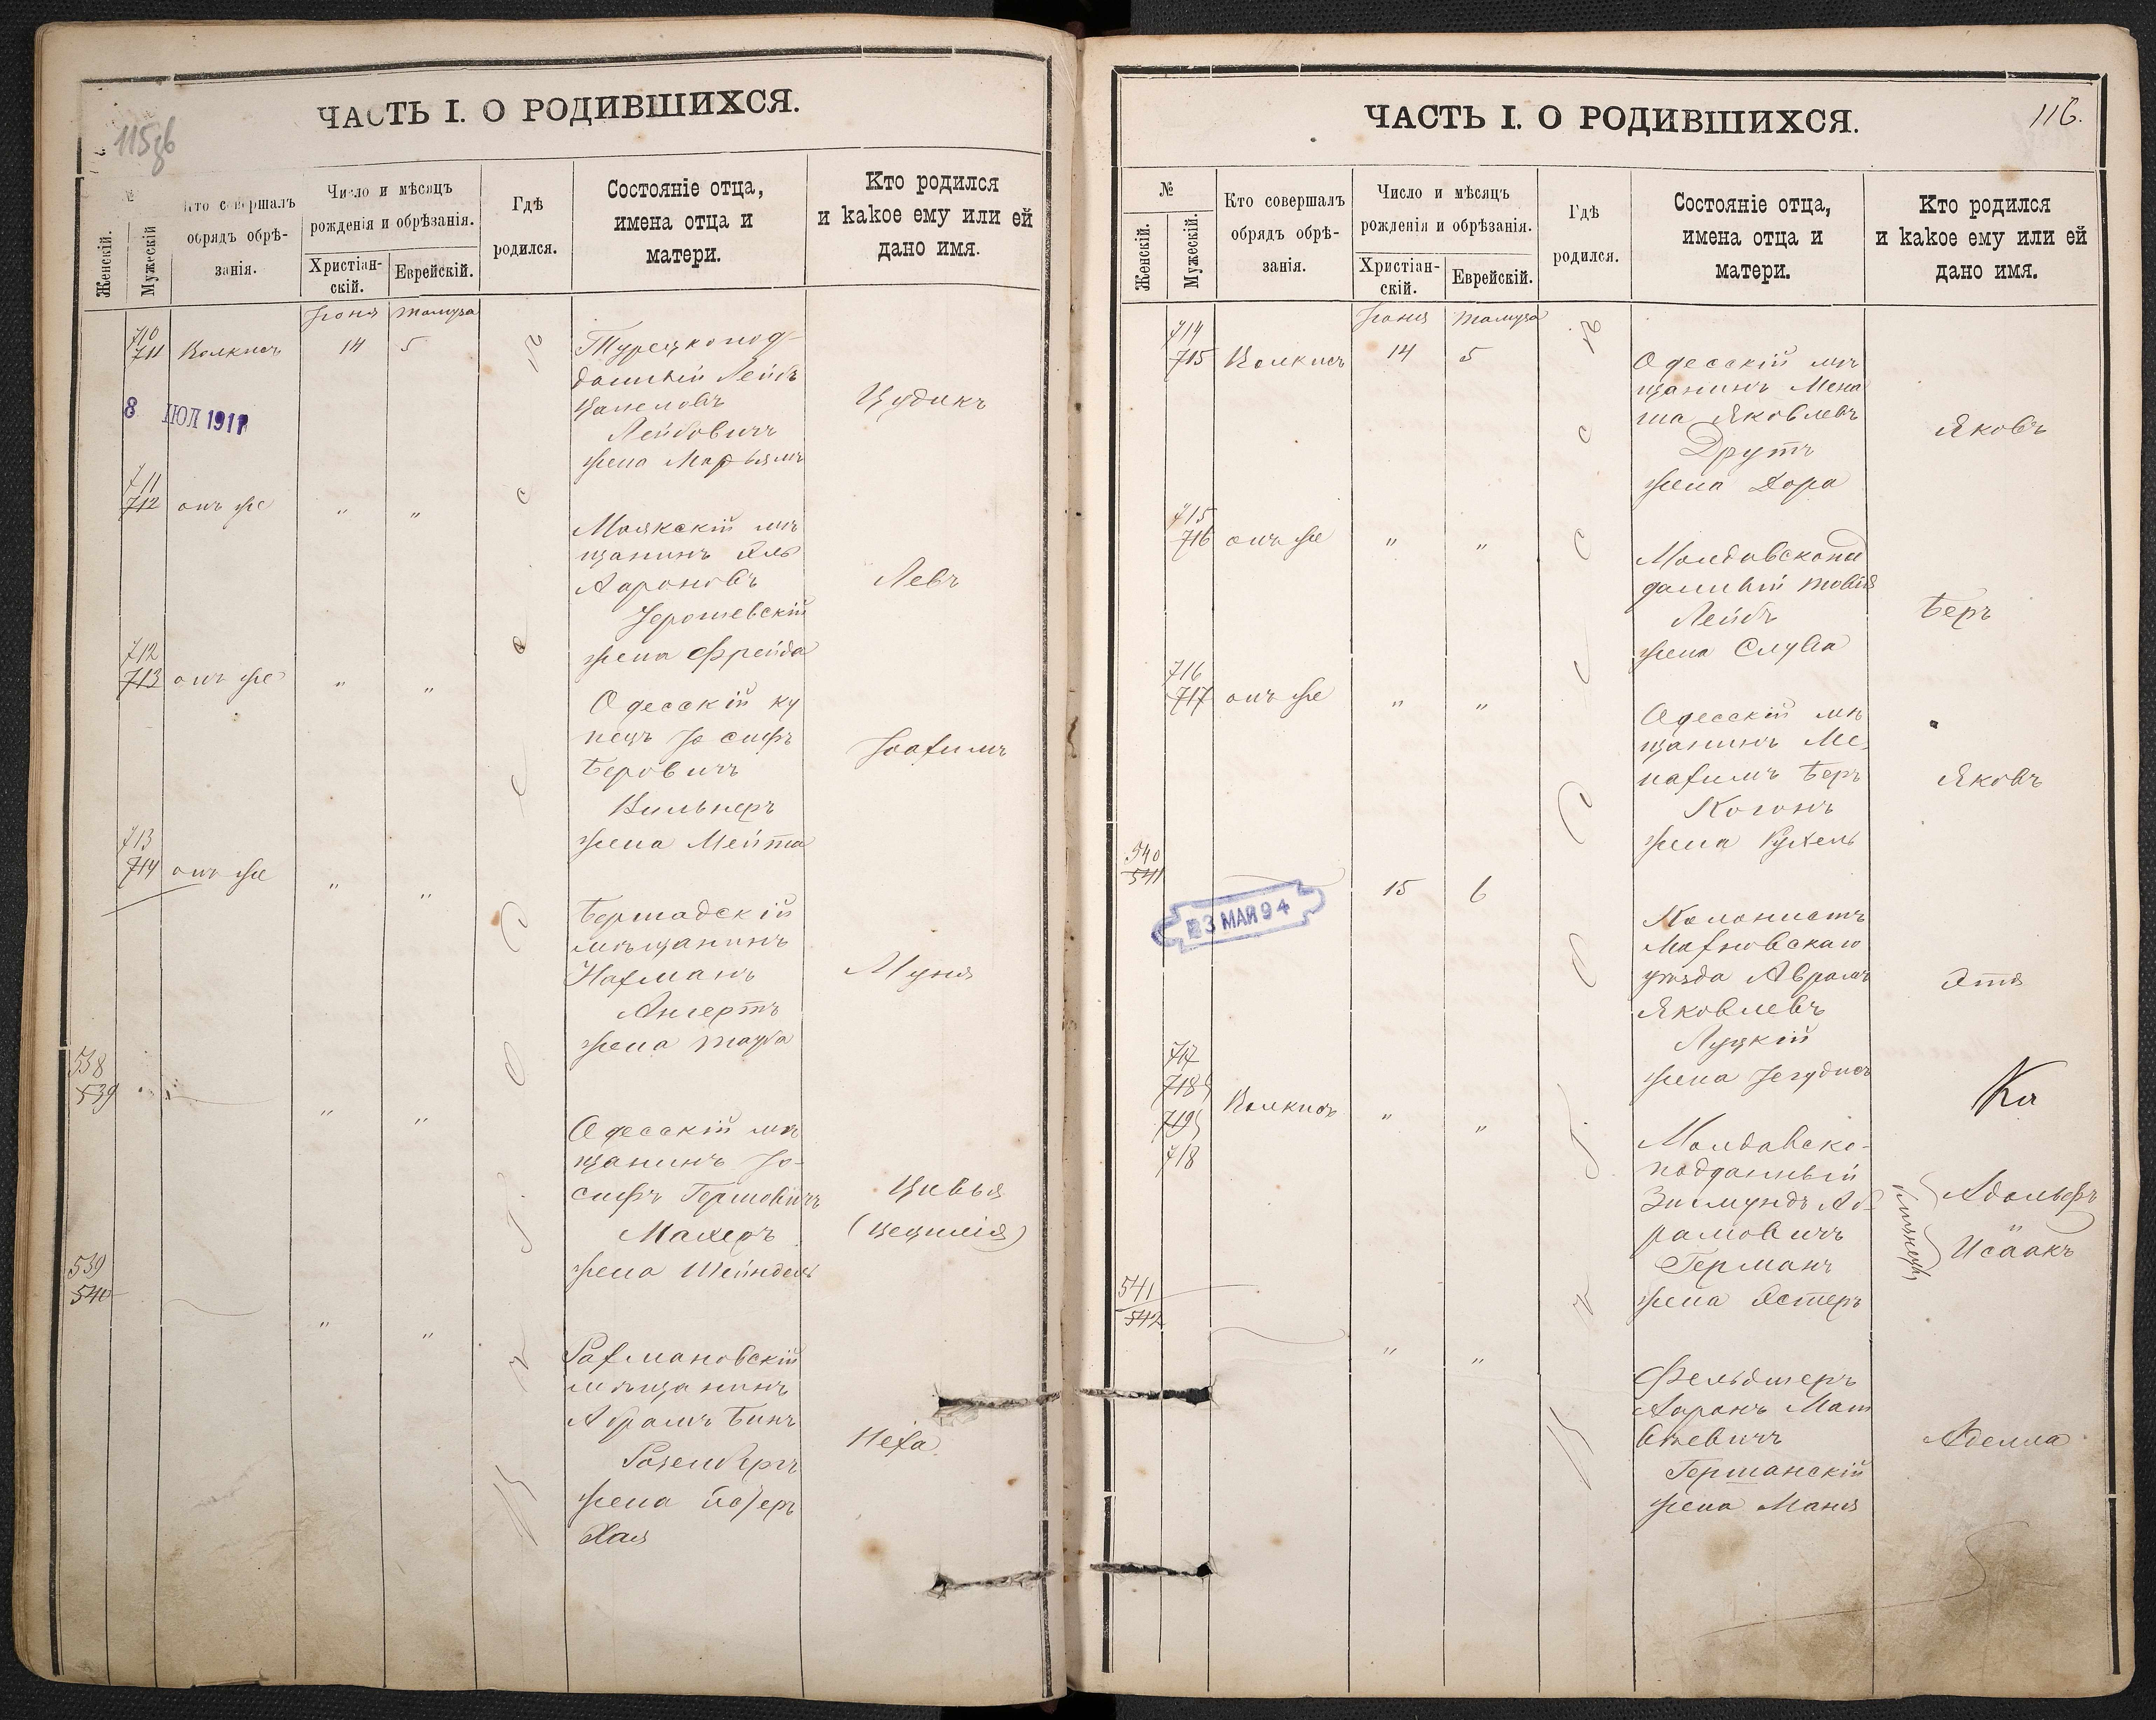 115об
ЧАСТЬ I. О РОДИВШИХСЯ.
№
Женскій.
Мужескій
Кто совершалъ обрядъ обрѣ-
занія.
Число и мѣсяцъ
рожденія и обрѣзанія.
Христіан-
скій.
Еврейскій.
Гдѣ
родился.
Состояніе отца,
имена отца и
матери.
Кто родился
и какое ему или ей
дано имя.
Іюня Тамуза
710
711 14 5
Турецкопод-
данный Лейбъ
Лейбовичъ
жена Марьямъ
Цудикъ
8 ІЮЛ 1911
711
712 онъ же " "
Маякскій мѣ
щанинъ
Аароновъ
жена Фрейда
Левъ
712
713 онъ же " "
Одесскій ку
пецъ Іосифъ
Беровичъ
Вильнеръ
жена Мейта
Іоахимъ
713
714 онъ же " "
Бершадскій
мѣщанинъ
Нахманъ
Ангертъ
жена Тауба
Муня
538
539 " "
Одесскій мѣ
щанинъ Іо-
сифъ Гершовичъ
Махеръ
жена Шейндель
Цивья
(Цецилія)
539
540 " "
Рахмановскій
мѣщанинъ
Абрамъ Бинъ
Розенбергъ
жена
Хая
Неха
116.
ЧАСТЬ I. О РОДИВШИХСЯ.
№
Женскій.
Мужескій.
Кто совершалъ
обрядъ обрѣ-
занія.
Число и мѣсяцъ
рожденія и обрѣзанія.
Христіан-
скій.
Еврейскій.
Гдѣ
родился.
Состояніе отца,
имена отца и
матери.
Кто родился
и какое ему или ей
дано имя.
Іюня Тамуза
714
715 14 5
Одесскій мѣ
щанинъ Мена
ша Яковлевъ
Друтъ
жена Дора
Яковъ
715
716 онъ же " "
Молдавскопод
данный Товія
Лейбъ
жена Слува
Беръ
716
717 онъ же " "
Одесскій мѣ
щанинъ Ме-
нахимъ Беръ
Когонъ
жена Рухель
Яковъ
540
541 15 6
23 МАЯ 94
Колонистъ
уѣзда Аврамъ
Яковлевъ
Луцкій
жена Іегудисъ
Этя
717
718
719
718 " "
Молдавско-
подданный
Зигмундъ Аб-
рамовичъ
Германъ
жена Эстеръ
близнецы
Адольфъ
Исаакъ
541
542 " "
Фельдшеръ
Ааронъ Мат
вѣевичъ
Германскій
жена Маня
Аделла